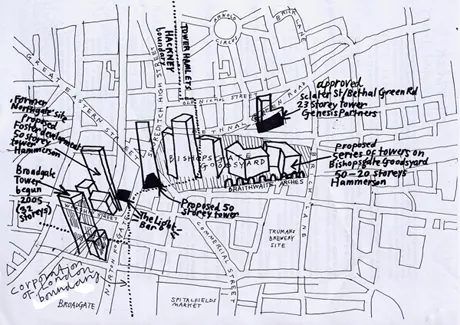 ARNOLD
CIRCUS
BRICK LANE
TOWER HAMLETS
HACKNEY
boundary
GREAT EASTERN STREET
SHOREDITCH HIGH STREET
OLD NICHOL STREET
BETHNAL GREEN ROAD
approved
Sclater St/Bethal Green Rd
23 Storey Tower
Genesis Partners
Former
Northgate Site
Proposed
Foster development
50 storey
tower
Hammerson
Broadgate
Tower
begun
2005
(32
storeys)
BISHOPSGATE
GOODSYARD
BRAITHWAITE ARCHES
proposed
series of towers on
Bishopsgate Goodsyard
50 - 20 storeys
Hammerson
Proposed 50
storey tower
The Light
Bar
NORTON
COMMERCIAL STREET
BRICK LANE
TRUMANS
BREWERY
SITE
Corporation
of London
boundary
BROADGATE
SPITALFIELDS
MARKET